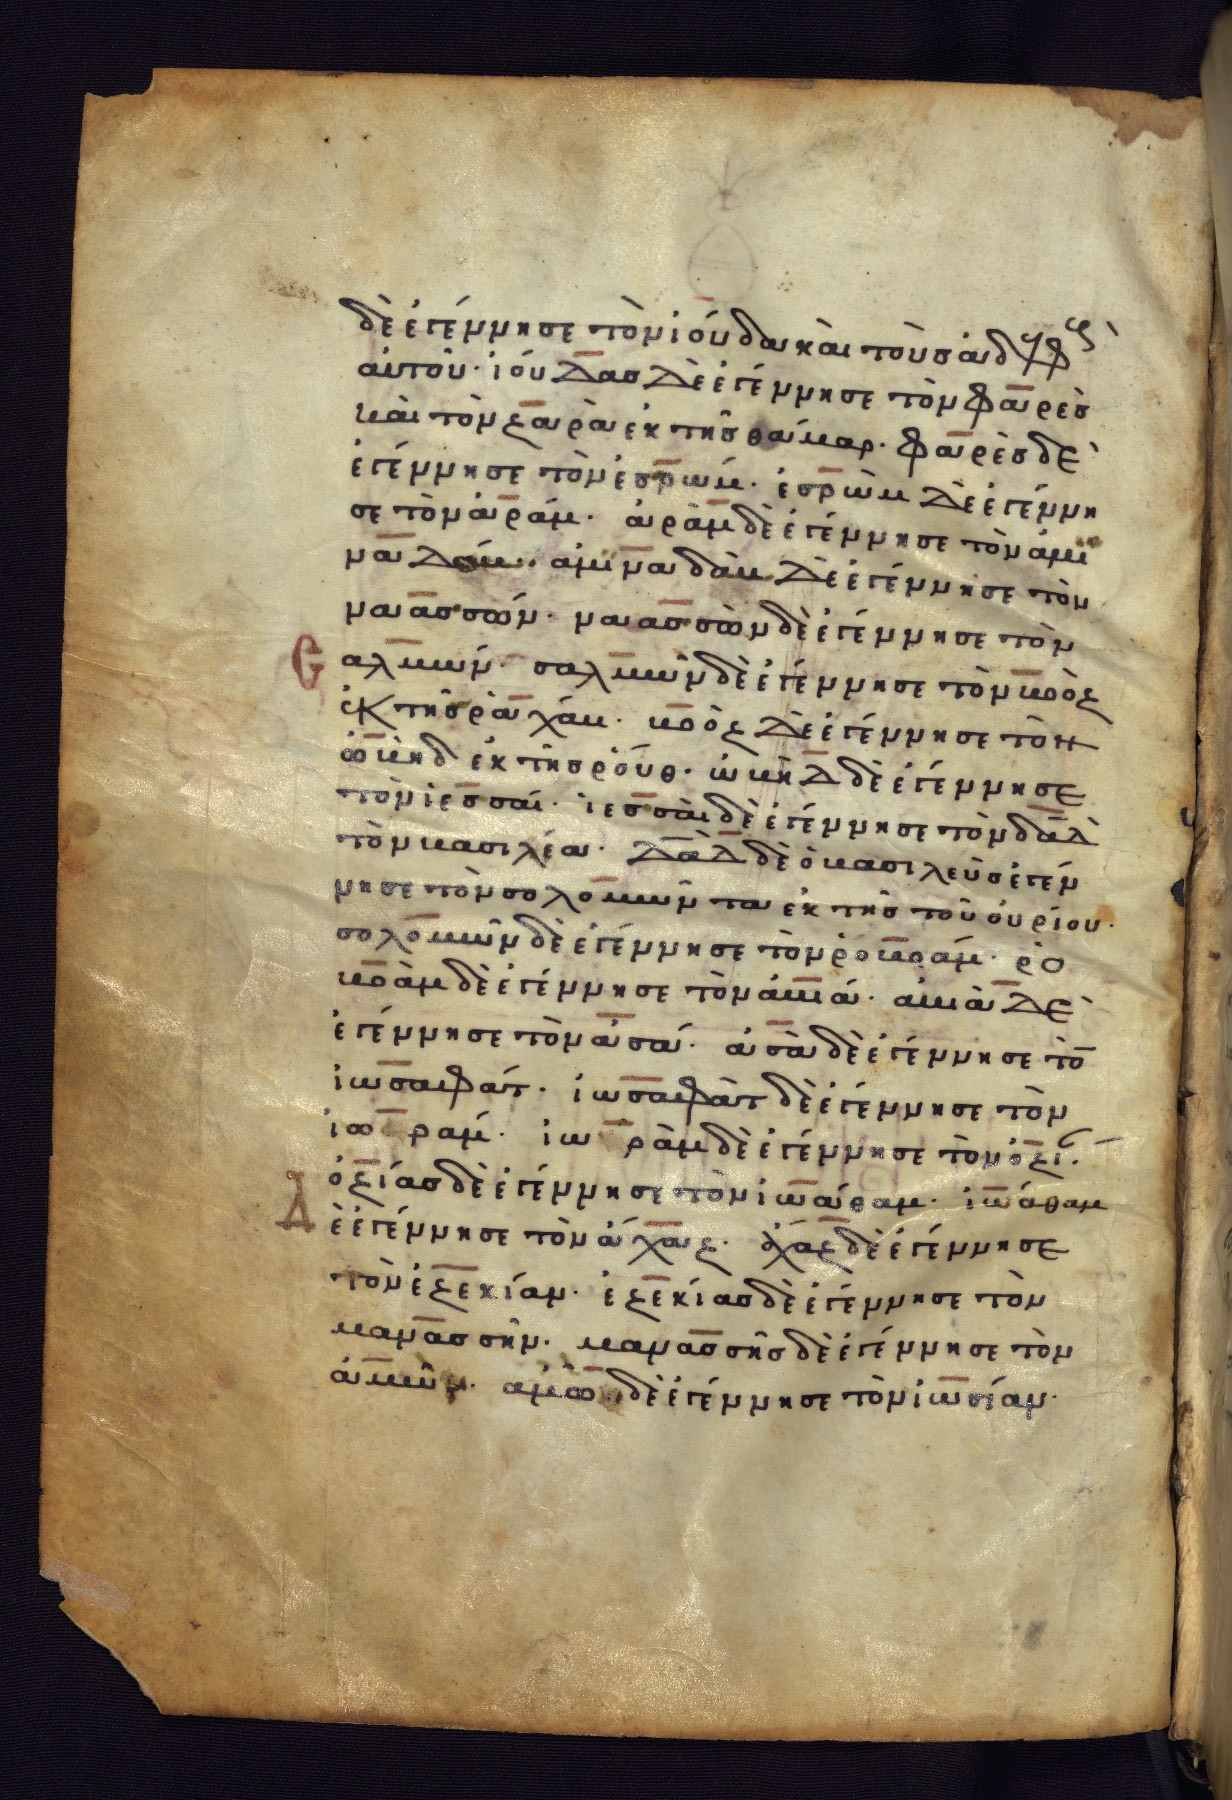 δὲ ἐγέννησε τὸν ἰούδαν καὶ τοὺς ἀδφς
αὐτοῦ· ἰούδας δὲ ἐγέννησε τὸν φαρὲς
καὶ τὸν ζαρὰ ἐκ τῆς θάμαρ· φαρὲς δὲ
ἐγέννησε τὸν ἐσρώμ· ἐσρὼμ δὲ ἐγέννη
σε τὸν ἀράμ· ἀρὰμ δὲ ἐγέννησε τὸν ἀμι
ναδάμ· ἀμιναδὰμ δὲ ἐγέννησε τὸν
ναασσών· ναασσὼν δὲ ἐγέννησε τὸν
Σαλμών· σαλμὼν δὲ ἐγέννησε τὸν βοὸζ
ἐκ τῆς ραχάβ· βοὸζ δὲ ἐγέννησε τὸν
ὠβὴδ ἐκ τῆς ῥούθ· ὠβὴδ δὲ ἐγέννησε
τὸν ἰεσσαί· ἰεσσαὶ δὲ ἐγέννησε τὸν δαδ
τὸν βασιλέα· δαδ δὲ ὁ βασιλεὺς ἐγέν
νησε τὸν σολομῶντα ἐκ τῆς τοῦ οὐρίου·
σολομὼν δὲ ἐγέννησε τὸν ῥοβοάμ· ῥο
βοὰμ δὲ ἐγέννησε τὸν ἀβιά· ἀβιὰ δὲ
ἐγέννησε τὸν ἀσά· ἀσὰ δὲ ἐγέννησε τὸ
ἰωσαφάτ· ἰωσαφὰτ δὲ ἐγέννησε τὸν
ἰωράμ· ἰωρὰμ δὲ ἐγέννησε τὸν ὀζί·
ὀζίας δὲ ἐγέννησε τὸν ἰωάθαμ· ἰωάθαμ
Δὲ ἐγέννησε τὸν ἄχαζ· ἄχαζ δὲ ἐγέννησε
τὸν ἐζεκίαν· ἐζεκίας δὲ ἐγέννησε τὸν
μανασσῆν· μανασσῆς δὲ ἐγέννησε τὸν
ἀμών· ἀμὼ δὲ ἐγέννησε τὸν ἰωσίαν·